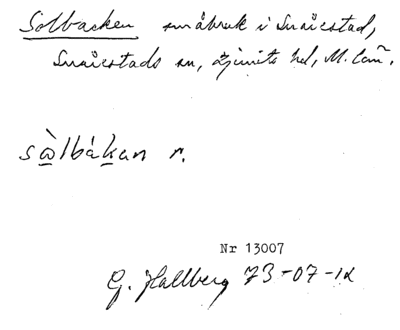 Solbacken småbruk i Snårestad,
Snårestads sn, Ljunits hd, M. län.
sòlbákan r.
Nr 13007
G. Hallberg 73-07-12